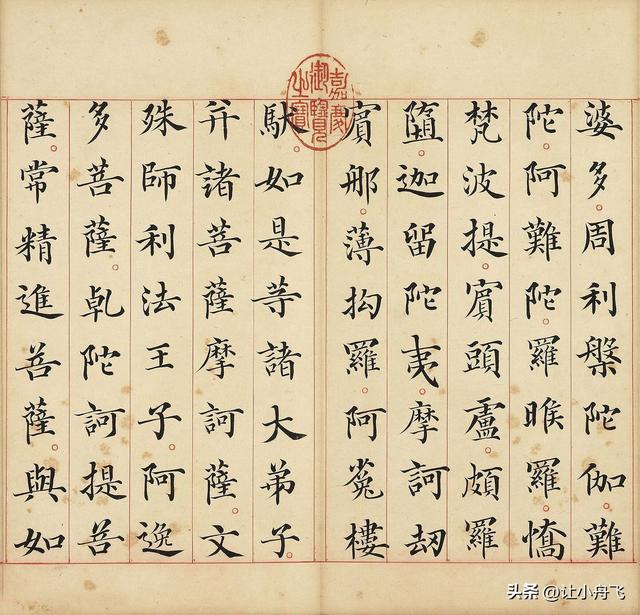 婆多。周利槃陀伽。難
陀。阿難陀。羅睺羅。憍
梵波提。賓頭盧。頗羅
墮。迦留陀夷。摩訶劫
賓那。薄拘羅。阿㝹樓
馱。如是等諸大弟子。
并諸菩薩摩訶薩。文
殊師利法王子。阿逸
多菩薩。乹陀訶提菩
薩。常精進菩薩。與如
嘉慶御覽之寶
头条 @让小舟飞